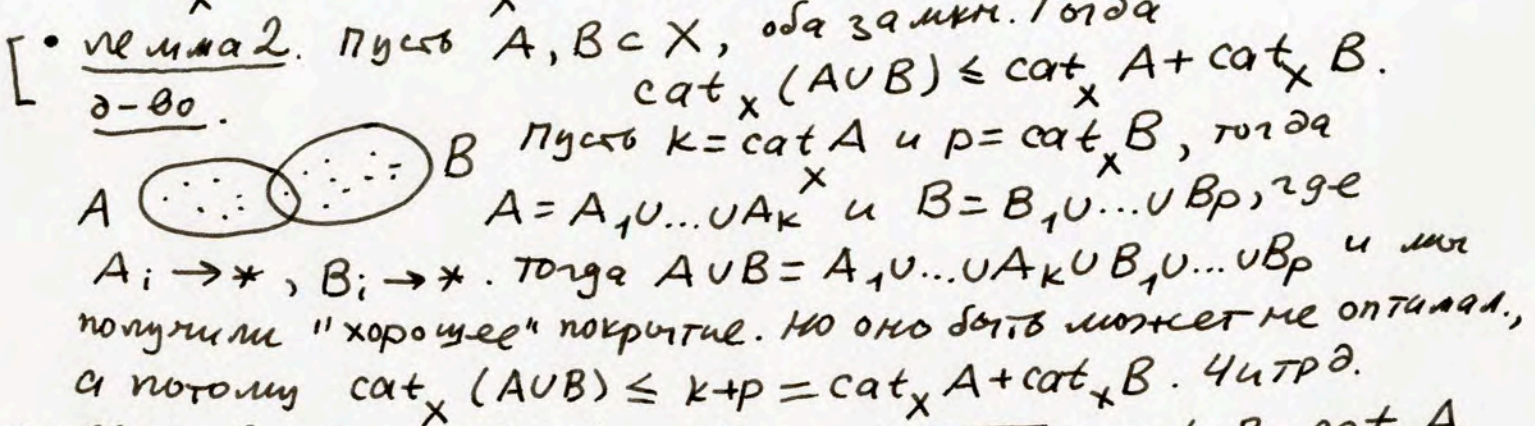 • Лемма 2. Пусть A, B ⊂ X, оба замкн. Тогда
cat_X (A∪B) ≤ cat_X A + cat_X B.
д-во.
Пусть k = cat_X A и p = cat_X B, тогда
A B
A = A_1∪...∪A_k и B = B_1∪...∪B_p, где
A_i → *, B_i → *. Тогда A∪B = A_1∪...∪A_k∪B_1∪...∪B_p и мы
получили "хорошее" покрытие. Но оно быть может не оптимал.,
а потому cat_X (A∪B) ≤ k+p = cat_X A + cat_X B. Читрд.
cat A